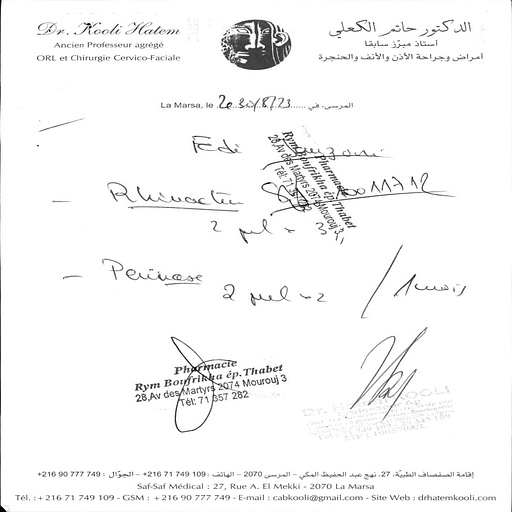 Dr. Kooli Hatem
Ancien Professeur agrégé
ORL et Chirurgie Cervico-Faciale
الدكتور حاتم الكعلي
أستاذ مبرّز سابقا
أمراض وجراحة الأذن والأنف والحنجرة
La Marsa, le المرسى، في
Fedi
- Rhino
2 pul x 3/j
- Perinase
2 pul x 2 / 1 mois
Pharmacie
Rym Boufrikha ép.Thabet
28,Av des Martyrs 2074 Mourouj 3
Tél: 71
Pharmacie
Rym Boufrikha ép.Thabet
28,Av des Martyrs 2074 Mourouj 3
Tél: 71 357 282
Dr. KOOLI
إقامة الصفصاف الطبيّة، 27، نهج عبد الحفيظ المكي - المرسى 2070 - الهاتف : 109 749 71 216+ - الجوّال : 749 777 90 216+
Saf-Saf Médical : 27, Rue A. El Mekki - 2070 La Marsa
Tél. : + 216 71 749 109 - GSM : + 216 90 777 749 - E-mail : cabkooli@gmail.com - Site Web : drhatemkooli.com